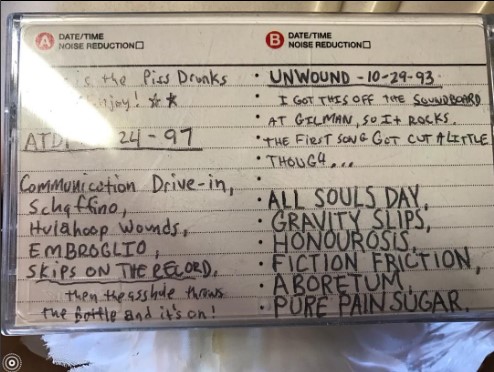 A DATE/TIME
NOISE REDUCTION
is the Piss Drunks
Enjoy!
24-97
Communication Drive-in,
Schaffino,
Hulahoop Wounds,
EMBROGLIO,
SKIPS ON THE RECORD,
then the asshole throws
the bottle and it's on!
B DATE/TIME
NOISE REDUCTION
• UNWOUND - 10-29-93
• I GOT THIS OFF THE SOUNDBOARD
• AT GILMAN, SO IT ROCKS.
• THE FIRST SONG GOT CUT A LITTLE
• THOUGH...
• ALL SOULS DAY,
• GRAVITY SLIPS,
• HONOUROSIS,
• FICTION FRICTION,
• ABORETUM,
• PURE PAIN SUGAR.